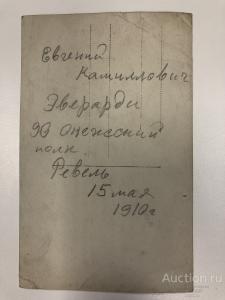 Евгений
Камиллович
Эверарди
90 Онежский
полк
Ревель
15 мая
1910 г
Auction.ru